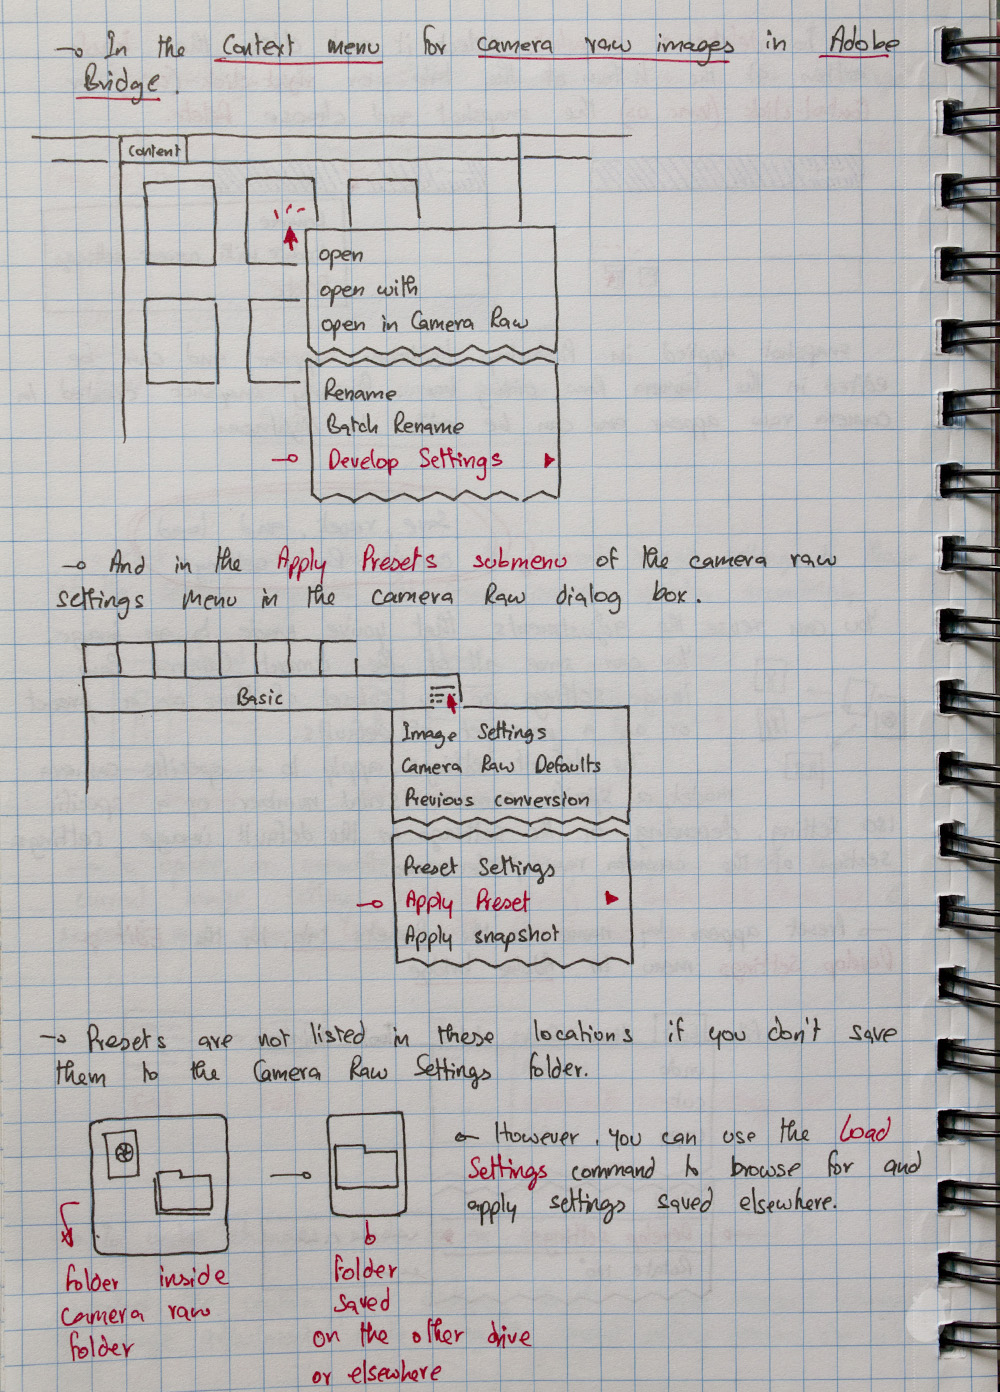 → In the Context menu for camera raw images in Adobe
Bridge.
Content
open
open with
open in Camera Raw
Rename
Batch Rename
Develop Settings
→ And in the Apply Presets submenu of the camera raw
settings menu in the camera Raw dialog box.
Basic
Image Settings
Camera Raw Defaults
Previous conversion
Preset Settings
Apply Preset
Apply snapshot
→ Presets are not listed in these locations if you don't save
them to the Camera Raw Settings folder.
← However, you can use the Load
Settings command to browse for and
apply settings saved elsewhere.
folder inside
camera raw
folder
folder
saved
on the other drive
or elsewhere